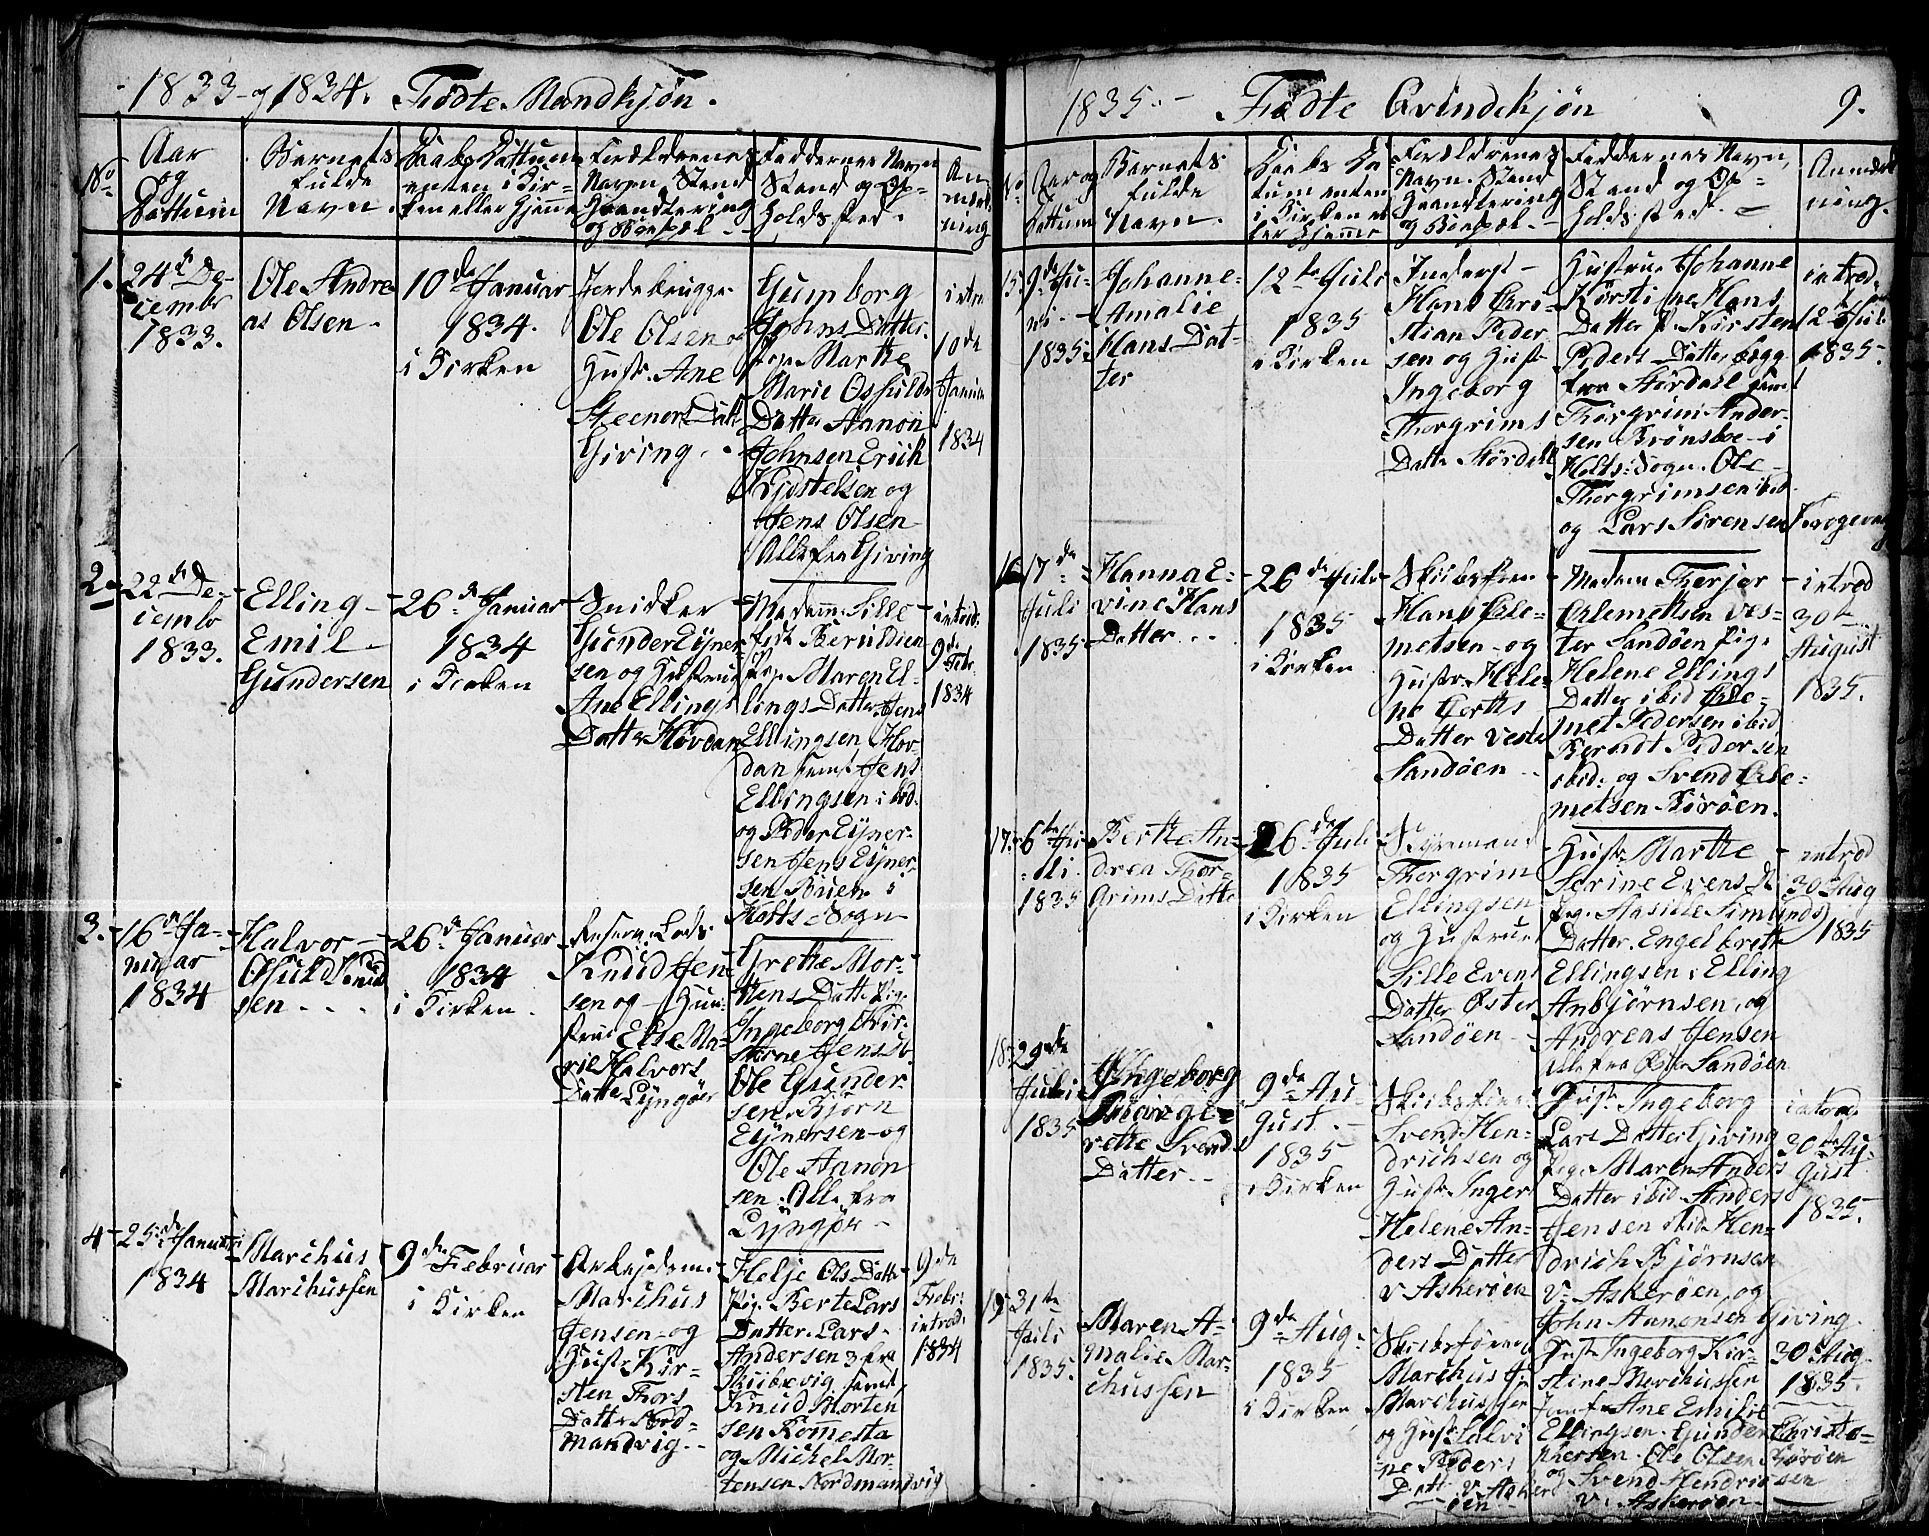 1833 og 1834. Fødte Mandkjøn.
No
Aar
og
Dattum
Barnets
fulde
Navn.
Daabs Dattum
enten i Kir-
ken eller Hjeme
Forældrenes
Navn, Stand
Haandtering
og Boepæl
Faddernes Navn
Stand og Op-
holdssted.
An
mærk
ning
1.
24de De-
cember
1833.
Ole Andre
as Olsen.
10de Januar
1834.
i Kirken
Jordebruger
Ole Olsen og
Hustr. Ane
Steeners Datt
Giving.
Gumborg
Johns Datter
Pige Marthe
Marie Osfulds
Datter Aanon
Johnsen Erich
Kjostelsen og
Jens Olsen
Alle fra Giving
introd
10de
Januar
1834
2.
22de De-
cemb
1833.
Elling
Emil
Gundersen
26de Januar
1834
i Kirken
Snidker
Gunder Eyner-
sen og Hustrue
Ane Ellings
Datter Hovdan
Madam Sille
Pig. Maren El-
lings Datter Jens
Ellingsen Hov-
dan samt Jens
Ellingsen ibid.
og Peder Eyner-
sen Jens Eyner-
sen Buen i
Holts Sogn
introd.
9de Febr.
1834
3.
16de Ja-
nuar
1834
Halvor
Osuld Knud
sen
26de Januar
1834
i Kirken.
Reserve Lods
Knud Jen-
sen og Hus-
true Else Ma-
rie Halvors
Datter Lyngøer
Grethe Mor-
tens Datter Pig.
Ingeborg Kir-
stine Jens D.
Ole Gunder-
sen Biørn
Eynersen og
Ole Aanon
sen. Alle fra
Lyngøe
4
25de Januar
1834
Marchus
Marchussen
9de Februar
i Kirken
Arbejdsm.
Marchus
Jensen og
Hustr. Kir-
sten Thors
Datter Nord-
mandvig.
Helje Ols Datter
Pig. Berte Lars
Datter. Lars
Andersen 3 fra
Skibevig samt
Knud Morten
sen Romesta
og Michel Mor-
tensen Nordmandvig
9de
Febr.
introd.
1834
1835. Fødte Qvindekjøn 9.
No
Aar og
Dattum
Barnets
fulde
Navn.
Daabs Da
tum enten
i Kirken el
ler Hjeme
Forældrenes
Navn. Stand
Haandtering
og Boepæl.
Faddernes Navn,
Stand og Op-
holdssted.
Anmærk
ning.
15.
9de Ju-
ni.
1835.
Johanne
Amalie
Hans Dat-
ter
12te Juli
1835
i Kirken
Inderst
Hans Chri-
stian Peder
sen og Hust
Ingeborg
Thorgrims
Datter Stördahl
Hustrue Johanne
Kirstine Hans
Datter P. Kirsten
Peders Datter begge
fra Stördal samt
Thorgrim Ander-
sen Brönsboe i
Holts Sogn. Ole
Thorgrimsen ibid
og Lars Sørensen
introd.
12 Juli
1835.
16
17de
Juli
1835
Hanna E-
vine Hans
Datter
26de Juli
1835
i Kirken
Skibsfører
Hans Cle-
metsen og
Hustr. Hele-
ne Gerths
Datter Vester
Sandøen
Madam Therjer
Clemetsen Ves-
ter Sandøen Pig.
Helene Ellings
Datter ibid Cle-
met Pedersen ibid
Berndt Pedersen
ibid: og Svend Cle-
metsen Borøen.
introd
30te
August
1835.
17.
6te Ju-
li.
1835
Berthe An-
drea Thor-
Grims Datter
26de Juli
1835
i Kirken
Styrmand
Thorgrim
Ellingsen
og Hustrue
Sille Evens
Datter Øster
Sandøen
Hustr. Marthe
Serine Evens D.
Pig. Aasille Simunds
Datter. Engelbreth
Ellingsen; Elling
Anbjörnsen, og
Andreas Jensen
alle fra Øster Sandøen
introd
30te Aug
1835
18.
29de
Juli
1835
Ingeborg
rethe Svend
Datter
9de Au-
gust.
1835
i Kirken
Skibsfører
Svend Hen-
drichsen og
Hustr. Inger
Helene An-
ders Datter
v Askerøen
Hustr. Ingeborg
Lars Datter Giving
Pig. Maren Anders
Datter ibid Anders
Jensen ibid Hen-
drich Bjørnsen
V. Askerøen, og
John Aanonsen Giving.
introd.
30te Au-
gust
1835.
19
31te
Juli
1835.
Maren A-
malie Mar-
chussen
9de Aug.
1835
i Kirken
Skibsfører
Marchus
Marchussen
og Hustr. Salvi
ne Peders
Datt. v. Asker
øen
Hustr. Ingeborg Kir-
stine Marchussen
Jomf. Ane Emilie
Ellingsen. Gunder Christo-
phersen. Ole Olsen Borøen
og Svend Hendricsen
v. Askerøen.
30te Aug.
1835.